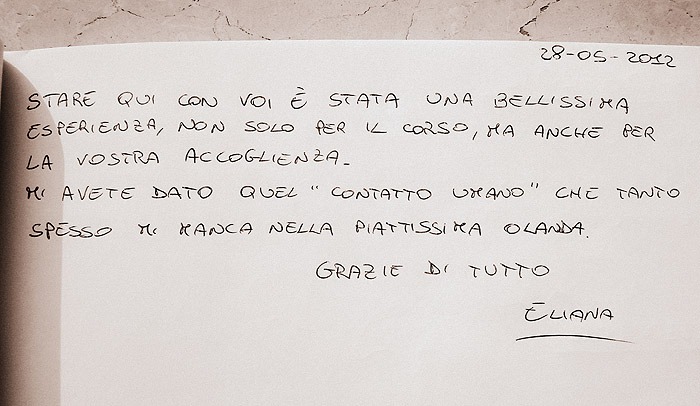 28-05-2012
STARE QUI CON VOI È STATA UNA BELLISSIMA
ESPERIENZA, NON SOLO PER IL CORSO, MA ANCHE PER
LA VOSTRA ACCOGLIENZA.
MI AVETE DATO QUEL "CONTATTO UMANO" CHE TANTO
SPESSO MI MANCA NELLA PIATTISSIMA OLANDA.
GRAZIE DI TUTTO
ELIANA